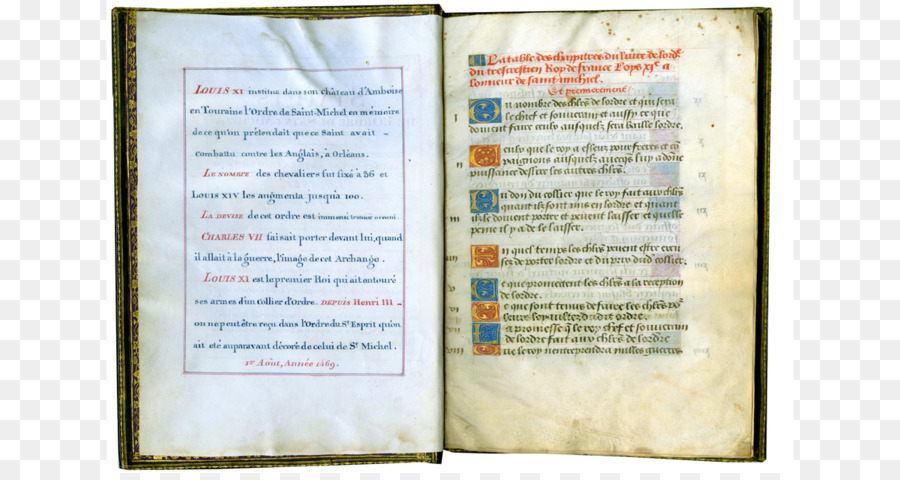 LOUIS XI institua dans son château d'Amboise
en Touraine l'Ordre de Saint-Michel en mémoire
de ce qu'on prétendait que ce Saint avait -
combattu contre les Anglais, à Orléans.
LE NOMBRE des chevaliers fut fixé à 36 et
LOUIS XIV les augmenta jusqu'à 100.
LA DEVISE de cet ordre est immensi tremor oceani.
CHARLES VII faisait porter devant lui, quand
il allait à la guerre, l'image de cet Archange.
LOUIS XI est le premier Roi qui ait entouré
ses armes d'un collier d'Ordre. DEPUIS Henri III -
on ne peut être reçu dans l'Ordre du St Esprit qu'on
ait été auparavant décoré de celui de St Michel.
1er Août, Année 1469.
La table des chapitres du livre de lordre
du trescrestien Roy de france Loys XIe a
lonneur de saint michiel.
Et premierement
I
Du nombre des chlrs de lordre et qui sera
le chief et souverain et aussy ce que
doivent faire ceulx ausquelz sera baille lordre.
II
Ceulx que le roy a esleuz pour freres et
compaignons ausquelz avecqs luy a donne
puissance deslire les autres chlrs.
III
Du don du collier que le roy fait aux chlrs
quant ilz sont mis en lordre et quant
ilz le doivent porter et peuent laisser et quelle
peine il y a de le laisser.
En quel temps les chlrs peuent estre excusez
de porter lordre et du pris dud collier.
Ce que promettent les chlrs a la reception
de lordre.
Ce que sont tenus de faire les chlrs
dud ordre.
La promesse q le roy chef et souverain
de lordre fait aux chlrs de lordre
Que le roy nentreprendra nulles guerres